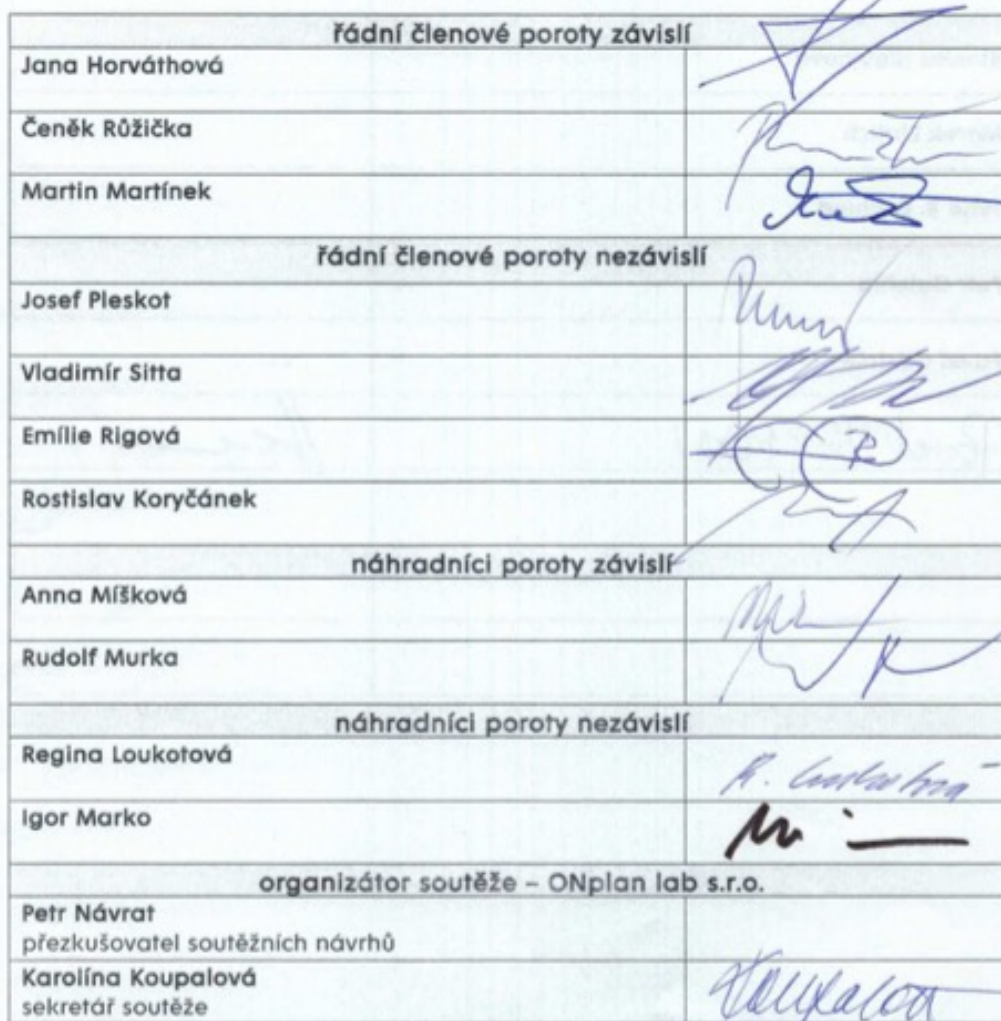 řádní členové poroty závislí
Jana Horváthová
Čeněk Růžička
Martin Martínek
řádní členové poroty nezávislí
Josef Pleskot
Vladimír Sitta
Emílie Rigová
Rostislav Koryčánek
náhradníci poroty závislí
Anna Míšková
Rudolf Murka
náhradníci poroty nezávislí
Regina Loukotová
R. Loukotová
Igor Marko
organizátor soutěže – ONplan lab s.r.o.
Petr Návrat
přezkušovatel soutěžních návrhů
Karolína Koupalová
sekretář soutěže